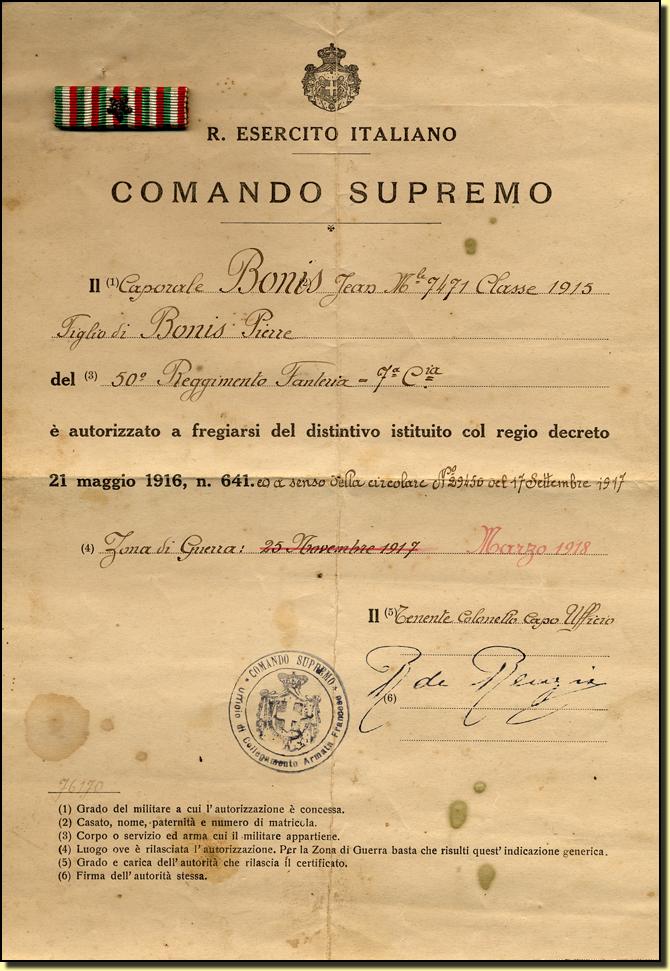 R. ESERCITO ITALIANO
COMANDO SUPREMO
Il (1) Caporale Bonis (2) Jean Mle 7471 Classe 1915
Figlio di Bonis Pierre
del (3) 50º Reggimento Fanteria = 7ª Cia
è autorizzato a fregiarsi del distintivo istituito col regio decreto
21 maggio 1916, n. 641. ed a senso della circolare Nº 29450 del 17 Settembre 1917
(4) Zona di Guerra: 25 Novembre 1917 Marzo 1918
Il (5) Tenente Colonello Capo Ufficio
R de Renzis
(6)
COMANDO SUPREMO
Ufficio di Collegamento Armata Francese
76170
(1) Grado del militare a cui l'autorizzazione è concessa.
(2) Casato, nome, paternità e numero di matricola.
(3) Corpo o servizio ed arma cui il militare appartiene.
(4) Luogo ove è rilasciata l'autorizzazione. Per la Zona di Guerra basta che risulti quest' indicazione generica.
(5) Grado e carica dell'autorità che rilascia il certificato.
(6) Firma dell'autorità stessa.